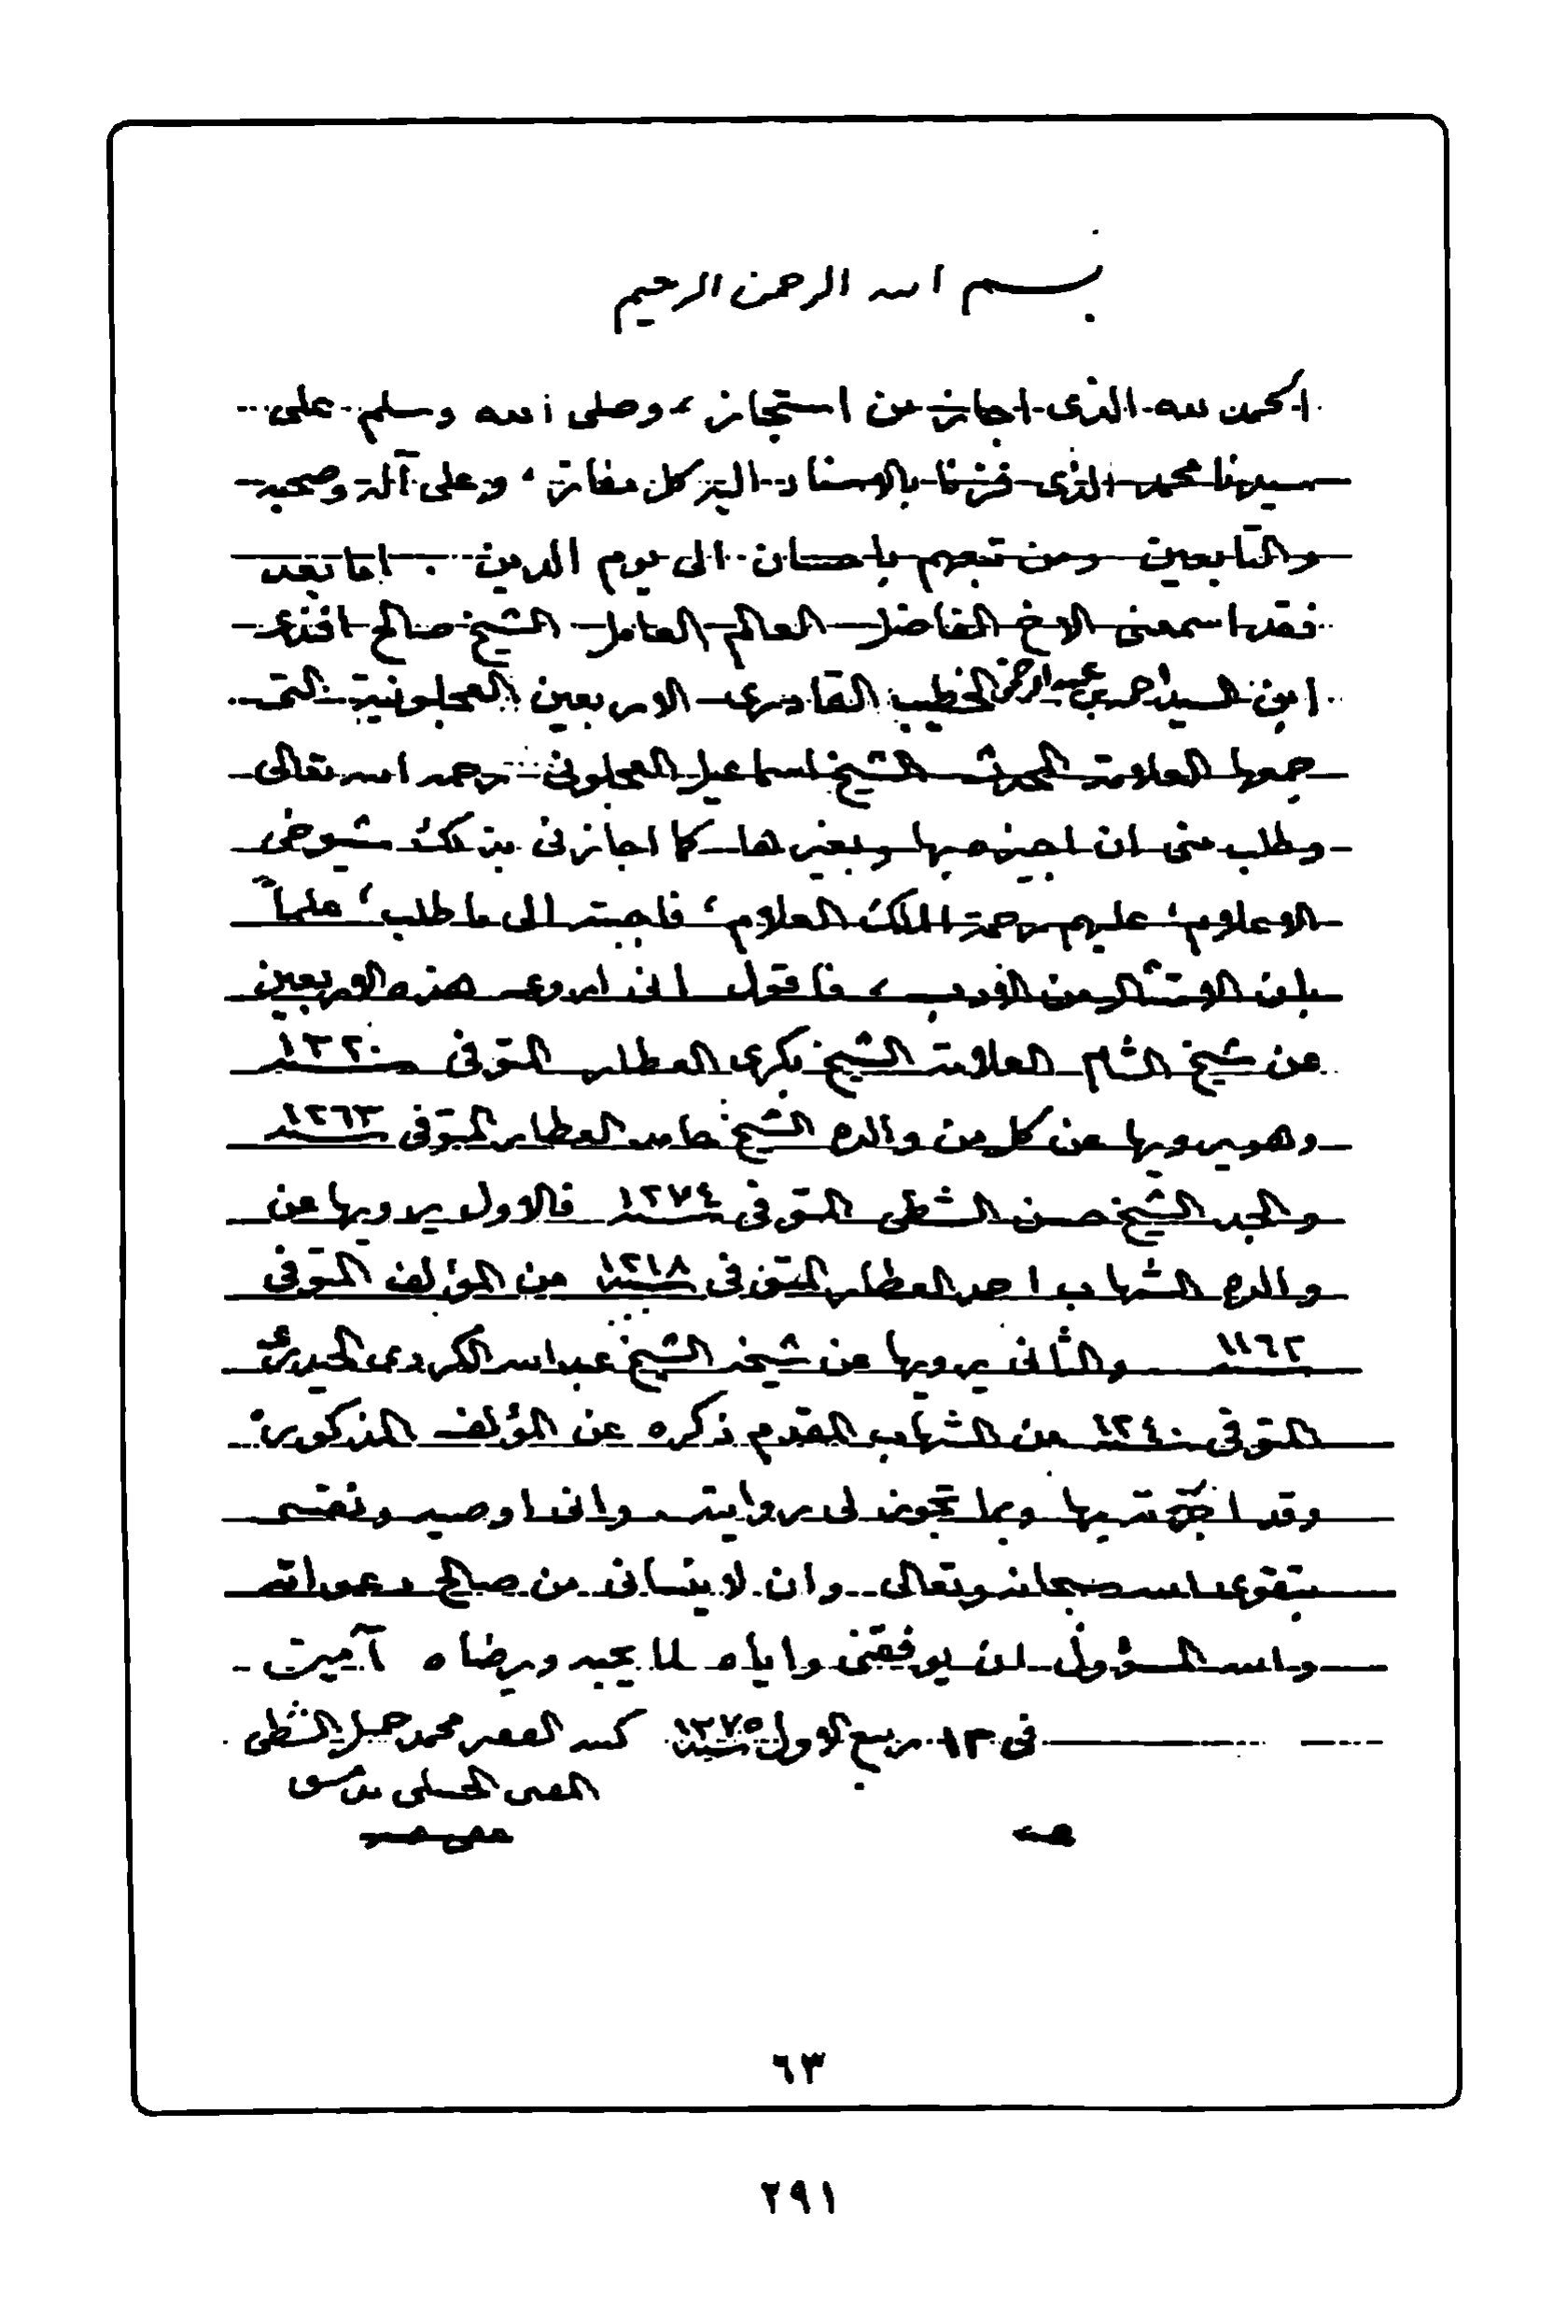 بسم الله الرحمن الرحيم
الحمد لله الذى اجاز من استجاز، وصلى الله وسلم على
سيدنا محمد الذى فزنا بالاسناد اليه كل مفازة، وعلى آله وصحبه
والتابعين ومن تبعهم باحسان الى يوم الدين . اما بعد
فقد اسمعنى الاخ الفاضل العالم العامل الشيخ صالح افندى
ابن السيد احمد بن عبد الرحمن الخطيب القادرى الاربعين العجلونية التى
جمعها العلامة المحدث الشيخ اسماعيل العجلونى رحمه الله تعالى
وطلب منى ان اجيزه بها وبغيرها كما اجازنى بذلك شيوخى
الاعلام، عليهم رحمة الملك العلام، فاجبته الى ما طلب، علماً
بان الامتثال من الادب، فاقول انى اروى هذه الاربعين
عن شيخ الشام العلامة الشيخ بكرى العطار المتوفى سنة ١٣٢٠
وهو يرويها عن كل من والده الشيخ حامد العطار المتوفى سنة ١٢٦٣
والجد الشيخ حسن الشطى المتوفى سنة ١٢٧٤ فالاول يرويها عن
والده الشهاب احمد العطار المتوفى سنة ١٢١٨ عن المؤلف المتوفى
سنة ١١٦٢ والثانى يرويها عن شيخه الشيخ عبد الله الكردى الحيدرى
المتوفى سنة ١٢٤٠ عن الشهاب المقدم ذكره عن المؤلف المذكور
وقد اجزته بها وبما تجوز لى روايته وانى اوصيه ونفسى
بتقوى الله سبحانه وتعالى وان لا ينسانى من صالح دعواته
والله المسؤول ان يوفقنى واياه لما يحبه ويرضاه آمين
فى ١٣ ربيع الاول سنة ١٣٧٥ كتبه الفقير محمد جميل الشطى
المفتى الحنبلى بدمشق
٦٣
٢٩١